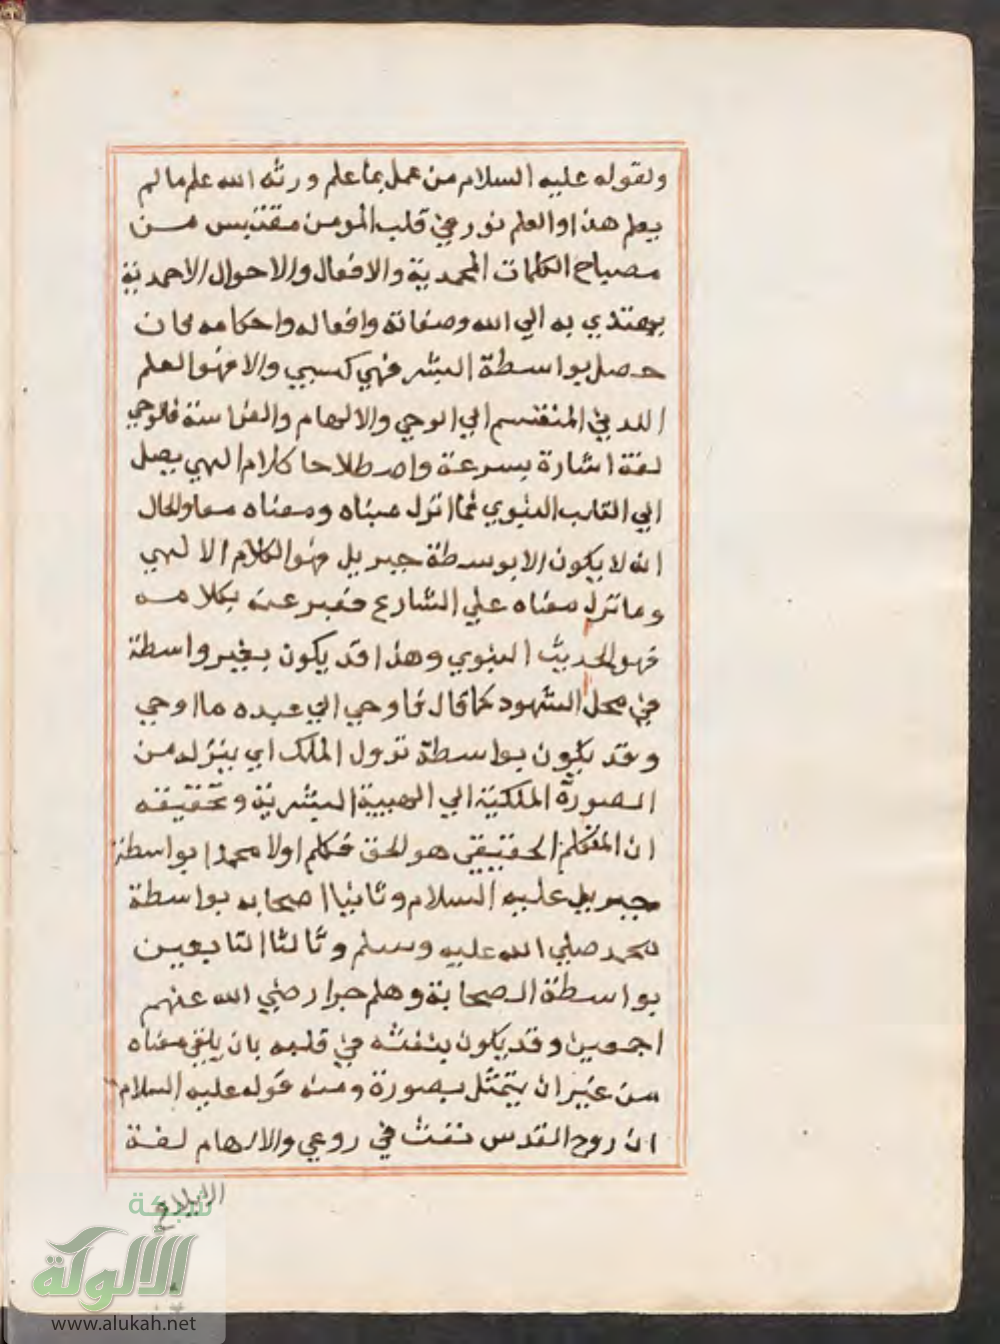 ولقوله عليه السلام من عمل بما علم ورثه الله علم ما لم
يعلم هذا والعلم نور في قلب المومن مقتبس مــن
مصباح الكلمات المحمدية والافعال والاحوال الاحمدية
يهتدي به الي الله وصفاته وافعاله واحكامه فان
حصل بواسطة البشر فهي كسبي والا فهو العلم
اللدني المنقسم الي الوحي والالهام والفراسة فالوحي
لغة اشارة بسرعة واصطلاحا كلام الهي يصل
الي القلب النبوي فما انزل مبناه ومعناه معا والحال
انه لا يكون الا بوسطة جبريل فهو الكلام الالهي
وما نزل معناه علي الشارع فعبر عنه بكلامــه
فهو الحديث النبوي وهذا قد يكون بغير واسطة
في محل الشهود كما قال فاوحي الي عبده ما اوحي
وقد يكون بواسطة نزول الملك اي بنزله من
الصورة الملكية الي الهيية البشرية وتحقيقه
ان المتكلم الحقيقي هو الحق فكلم اولا محمدا بواسطة
جبريل عليه السلام وثانيا اصحابه بواسطة
محمد صلي الله عليه وسلم وثالثا التابعين
بواسطة الصحابة وهلم جرا رضي الله عنهم
اجمعين وقد يكون بنفثه في قلبه بان يلقي معناه
من غير ان يتمثل بصورة ومنه قوله عليه السلام
ان روح القدس نفث في روعي والالهام لغــة
الابلاغ
شبكة
الألوكة
www.alukah.net